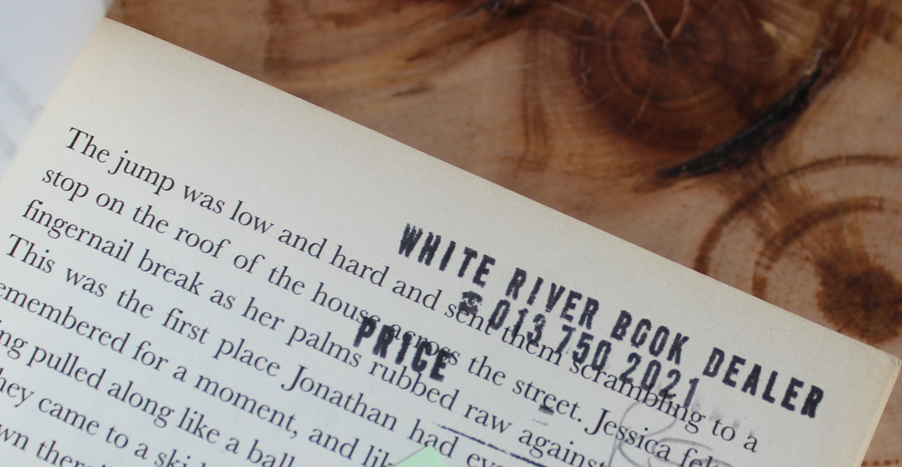 The jump was low and hard and sent them scrambling to a
stop on the roof of the house across the street. Jessica felt
fingernail break as her palms rubbed raw against
This was the first place Jonathan had
emembered for a moment, and
ng pulled along like a ball
hey came to a
wn
WHITE RIVER BOOK DEALER
☎ 013 750 2021
PRICE